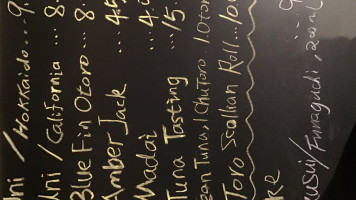 Uni / Hokkaido ... 9.
Uni / California ... 8.
Blue Fin Otoro ... 8.
Amber Jack ... 4.5
Madai ... 4.
Tuna Tasting ... 15.
Tuna, 1 Chutoro 1 Otoro
Toro Scallian Roll ... 10
/ Funaguchi, 200ml ... 9